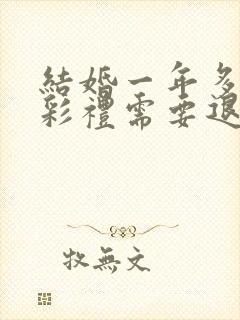 結婚一年多
彩禮需要退
牧無文